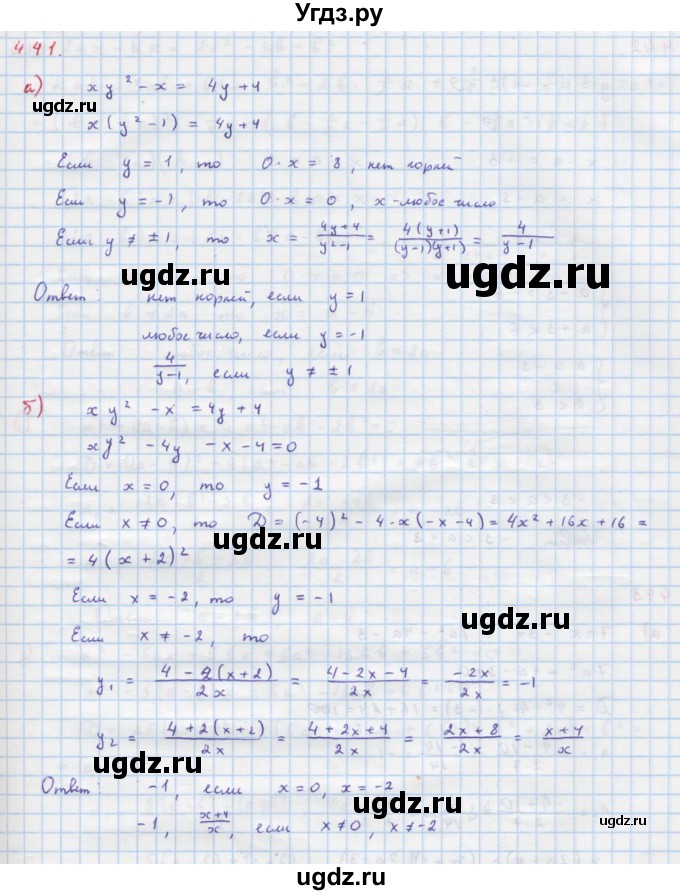 Угдз.ру
441.
а) xy² - x = 4y + 4
ugdz.ru
x(y² - 1) = 4y + 4
Если y = 1, то 0·x = 8, нет корней
Если y = -1, то 0·x = 0, x - любое число
Если y ≠ ±1, то x = (4y+4)/(y²-1) = 4(y+1)/((y-1)(y+1)) = 4/(y-1)
ugdz.ru ugdz.ru
Ответ: нет корней, если y = 1
любое число, если y = -1
4/(y-1), если y ≠ ±1
ugdz.ru
б) xy² - x = 4y + 4
xy² - 4y - x - 4 = 0
Если x = 0, то y = -1
Если x ≠ 0, то D = (-4)² - 4·x(-x-4) = 4x² + 16x + 16 =
ugdz.ru
= 4(x+2)²
Если x = -2, то y = -1
ugdz.ru
Если x ≠ -2, то
y₁ = (4 - 2(x+2))/2x = (4-2x-4)/2x = -2x/2x = -1
ugdz.ru
y₂ = (4+2(x+2))/2x = (4+2x+4)/2x = (2x+8)/2x = (x+4)/x
ugdz.ru
Ответ: -1, если x = 0, x = -2
ugdz.ru
-1, (x+4)/x, если x ≠ 0, x ≠ -2
ugdz.ru
Угдз.ру